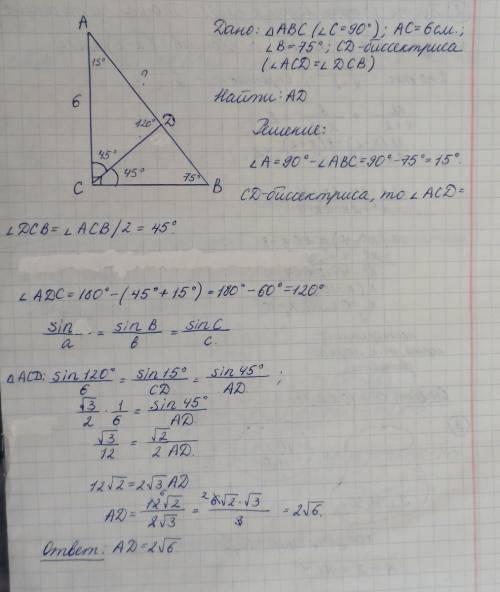 A
15°
6
?
120°
D
45°
45°
75°
C
B
Дано: △ABC (∠C=90°); AC=6см.;
∠B=75°; CD-биссектриса
(∠ACD=∠DCB)
Найти: AD
Решение:
∠A=90°-∠ABC=90°-75°=15°.
CD-биссектриса, то ∠ACD=
∠DCB=∠ACB/2=45°.
∠ADC=180°-(45°+15°)=180°-60°=120°
sin/a = sin B/b = sin C/c.
△ACD: sin 120°/6 = sin 15°/CD = sin 45°/AD ;
√3/2 · 1/6 = sin 45°/AD.
√3/12 = √2/2 AD.
12√2=2√3 AD
AD= 12√2/2√3 = 6√2·√3/3 = 2√6.
Ответ: AD=2√6.